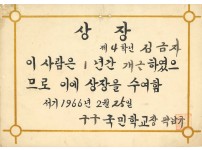 상장
제4학년 심금자
이 사람은 1년간 개근 하였으
므로 이에 상장을 수여함
서기 1966年 2월 25일
국민학교장